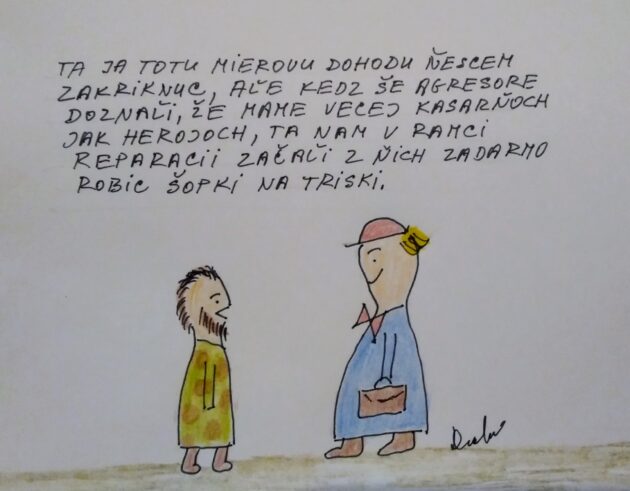 TA JA TOTU MIEROVU DOHODU ŇESCEM
ZAKRIKNUC, AĽE KEDZ ŠE AGRESORE
DOZNAĽI, ŽE MAME VECEJ KASARŇOCH
JAK HEROJOCH, TA NAM V RAMCI
REPARACII ZAČAĽI Z ŇICH ZADARMO
ROBIC ŠOPKI NA TRISKI.